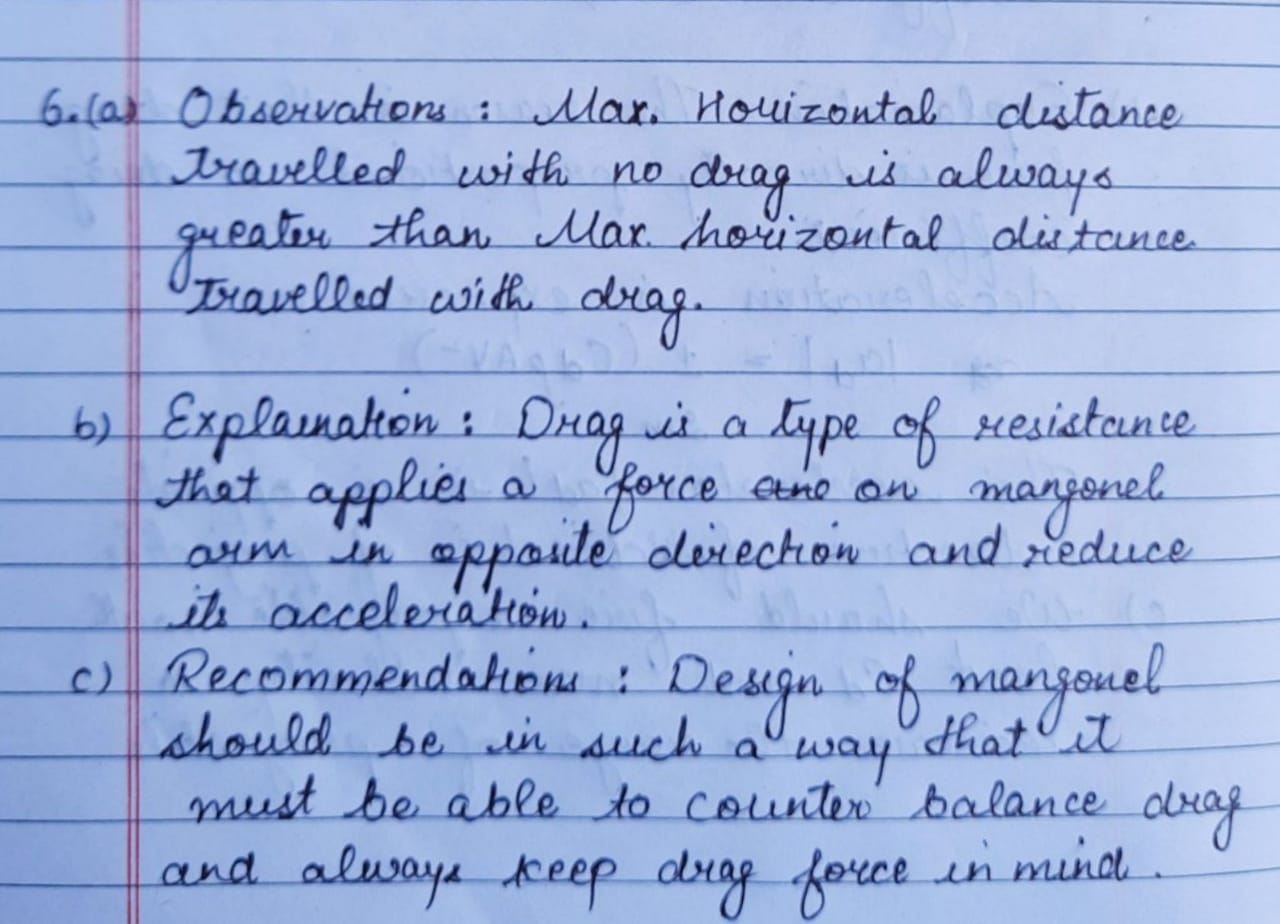 6.(a) Observations : Max. Horizontal distance
travelled with no drag is always
greater than Max. horizontal distance
travelled with drag.
b) Explaination : Drag is a type of resistance
that applies a force on mangonel
arm in opposite direction and reduce
its acceleration.
c) Recommendations : Design of mangonel
should be in such a way that it
must be able to counter balance drag
and always keep drag force in mind.